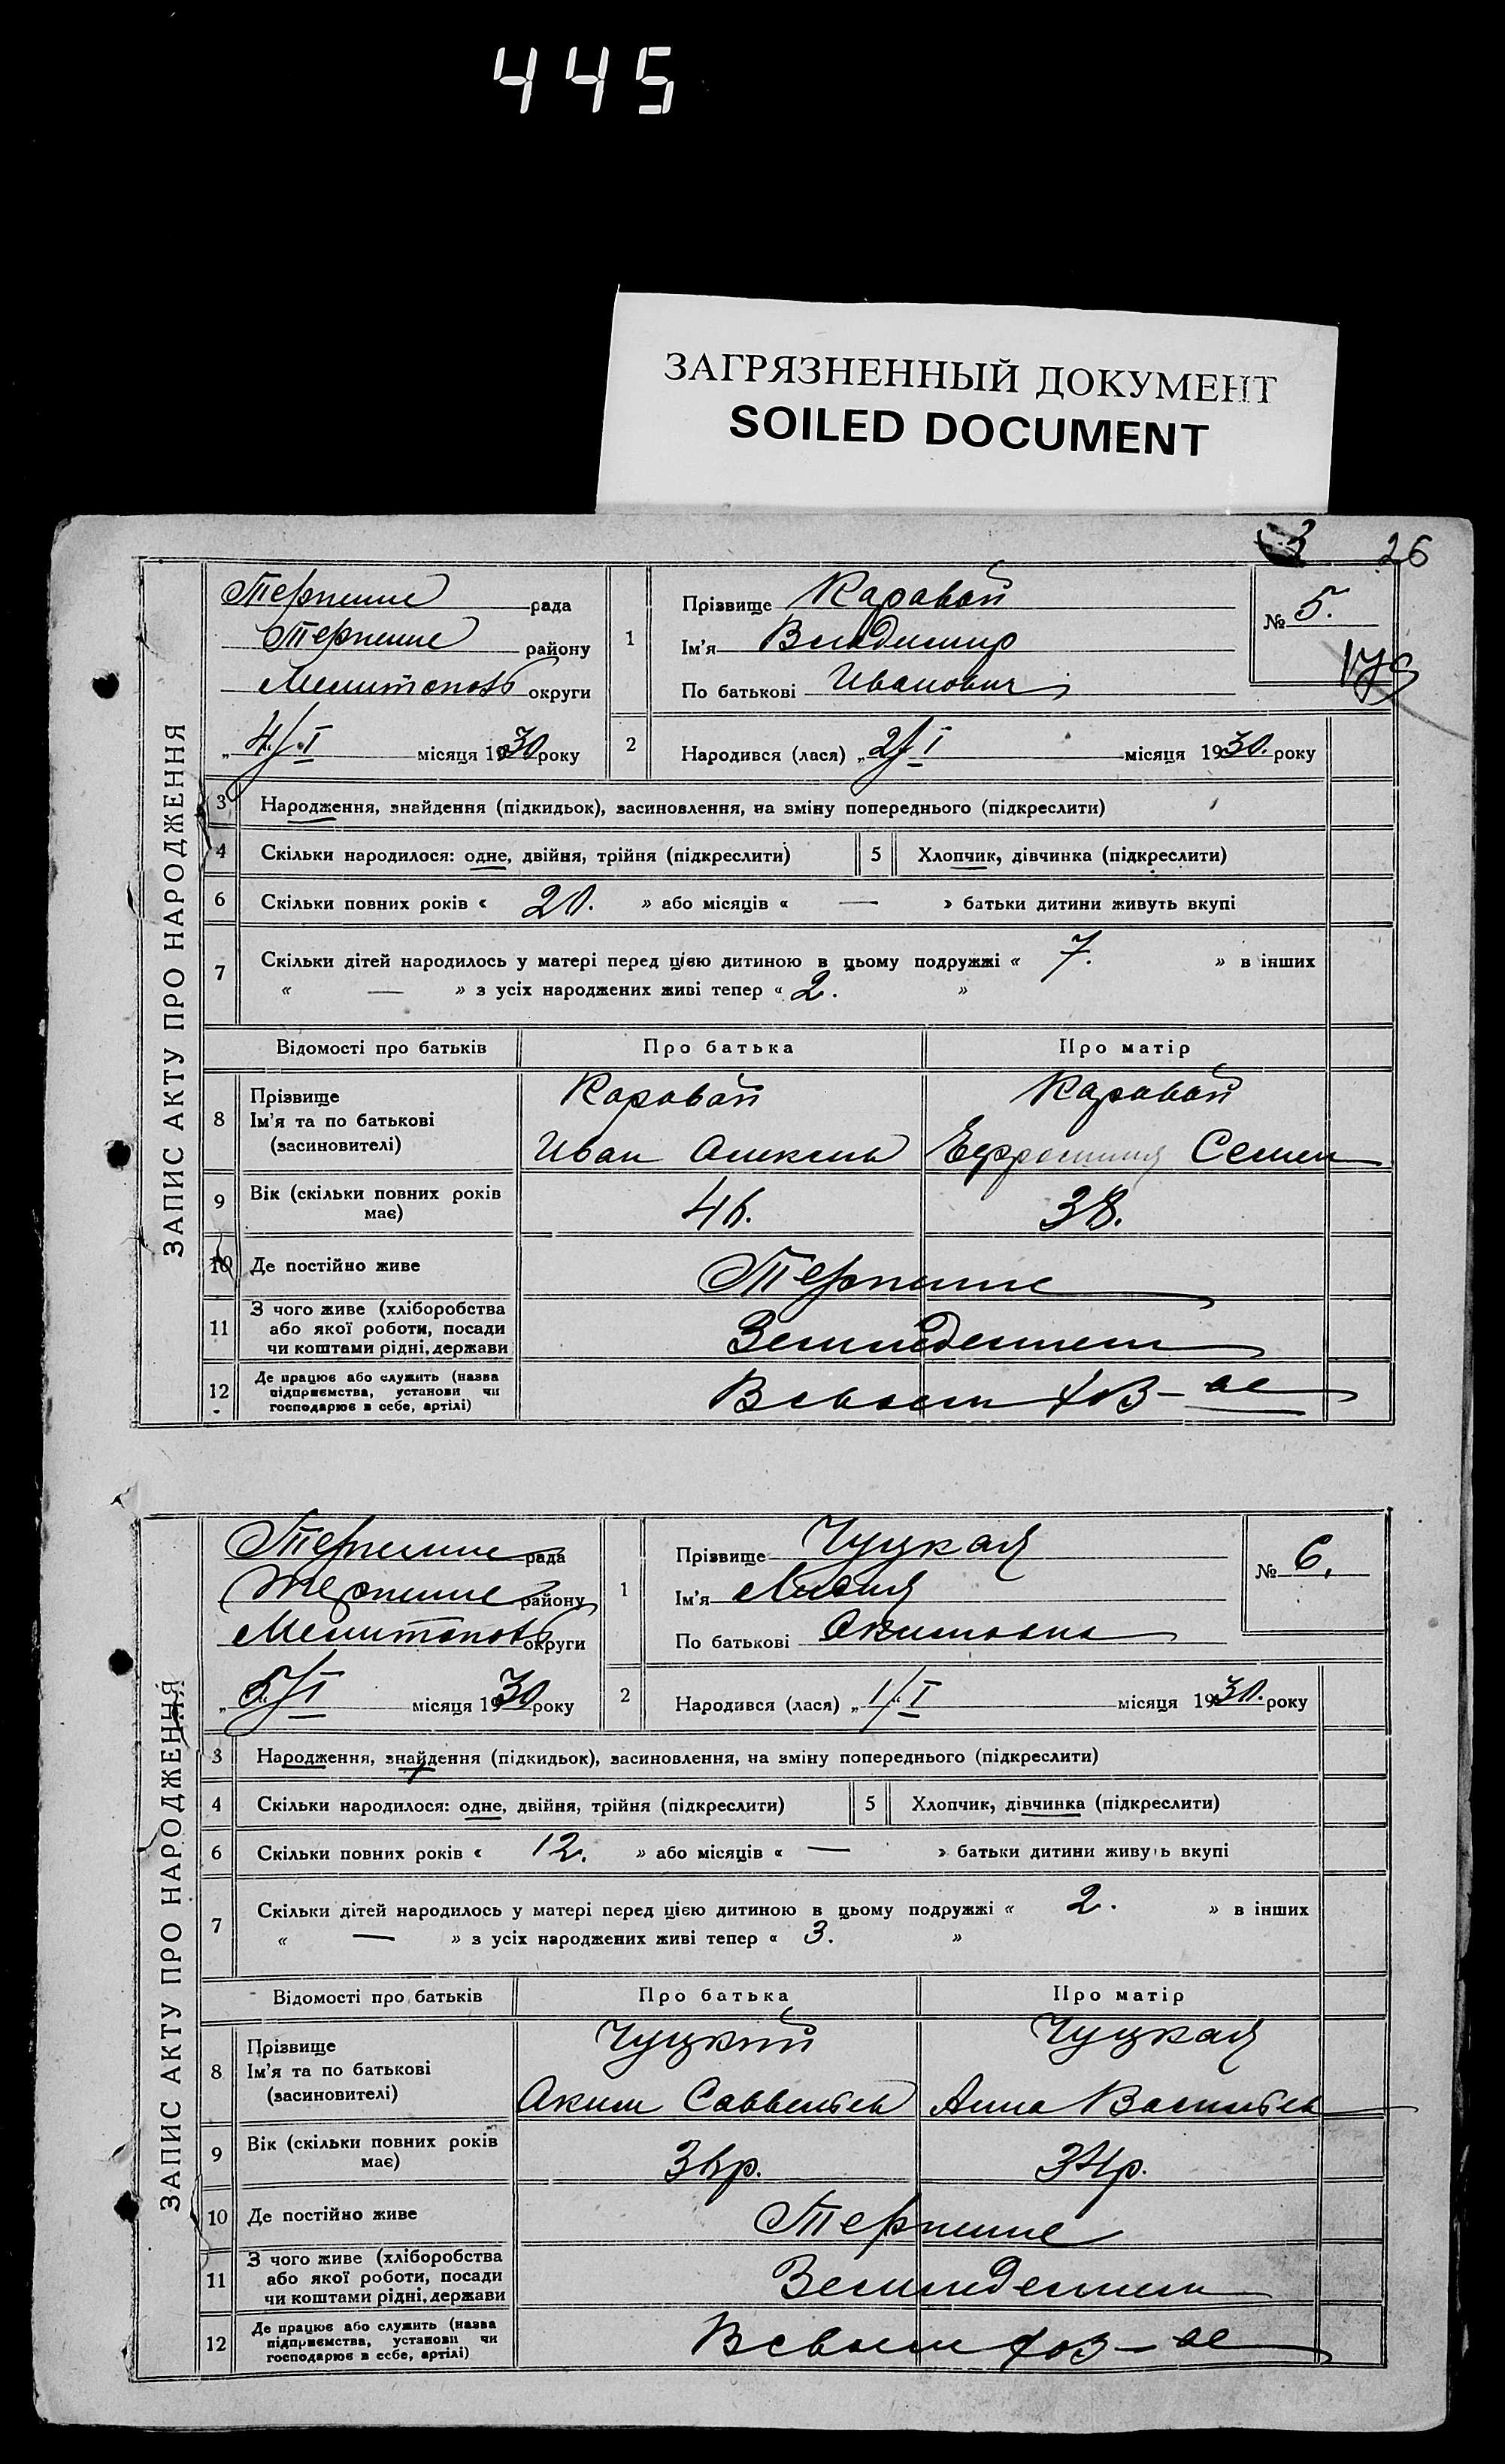 445
ЗАГРЯЗНЕННЫЙ ДОКУМЕНТ
SOILED DOCUMENT
26
ЗАПИС АКТУ ПРО НАРОДЖЕННЯ
Терпение рада
Терпение району
Мелитополь округи
„4/I місяця 1930 року
1
Прізвище Каравай
Ім'я Владимир
По батькові Иванович
№ 5.
2 Народився (лася) „2/I місяця 1930. року
3 Народження, знайдення (підкидьок), засиновлення, на зміну попереднього (підкреслити)
4 Скільки народилося: одне, двійня, трійня (підкреслити) 5 Хлопчик, дівчинка (підкреслити)
6 Скільки повних років « 20. » або місяців « — » батьки дитини живуть вкупі
7 Скільки дітей народилось у матері перед цією дитиною в цьому подружжі « 7. » в інших
« — » з усіх народжених живі тепер « 2. »
Відомості про батьків Про батька Про матір
8 Прізвище Каравай Каравай
Ім'я та по батькові
(засиновителі) Иван Алексеев Ефросиния Семен
9 Вік (скільки повних років має) 38.
10 Де постійно живе Терпение
11 З чого живе (хліборобства
або якої роботи, посади
чи коштами рідні, держави Земледелием
12 Де працює або служить (назва
підприємства, установи чи
господарює в себе, артілі) В своем хоз-ве
ЗАПИС АКТУ ПРО НАРОДЖЕННЯ
Терпение рада
Терпение району
Мелитополь округи
„5/I місяця 1930 року
1
Прізвище Чуцкая
Ім'я Лидия
По батькові Акимовна
№ 6.
2 Народився (лася) „1/I місяця 1930. року
3 Народження, знайдення (підкидьок), засиновлення, на зміну попереднього (підкреслити)
4 Скільки народилося: одне, двійня, трійня (підкреслити) 5 Хлопчик, дівчинка (підкреслити)
6 Скільки повних років « 12. » або місяців « — » батьки дитини живуть вкупі
7 Скільки дітей народилось у матері перед цією дитиною в цьому подружжі « 2. » в інших
« — » з усіх народжених живі тепер « 3. »
Відомості про батьків Про батька Про матір
8 Прізвище Чуцкий Чуцкая
Ім'я та по батькові
(засиновителі) Аким Савельев Анна Васильев
9 Вік (скільки повних років має) 36р. 34р.
10 Де постійно живе Терпение
11 З чого живе (хліборобства
або якої роботи, посади
чи коштами рідні, держави Земледелием
12 Де працює або служить (назва
підприємства, установи чи
господарює в себе, артілі) В своем хоз-ве